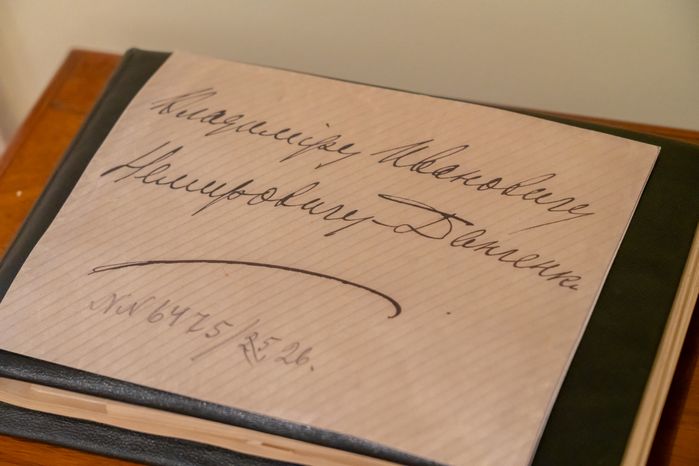 Владиміру Ивановичу
Немировичу-Данченк
NN 6475/25 26.